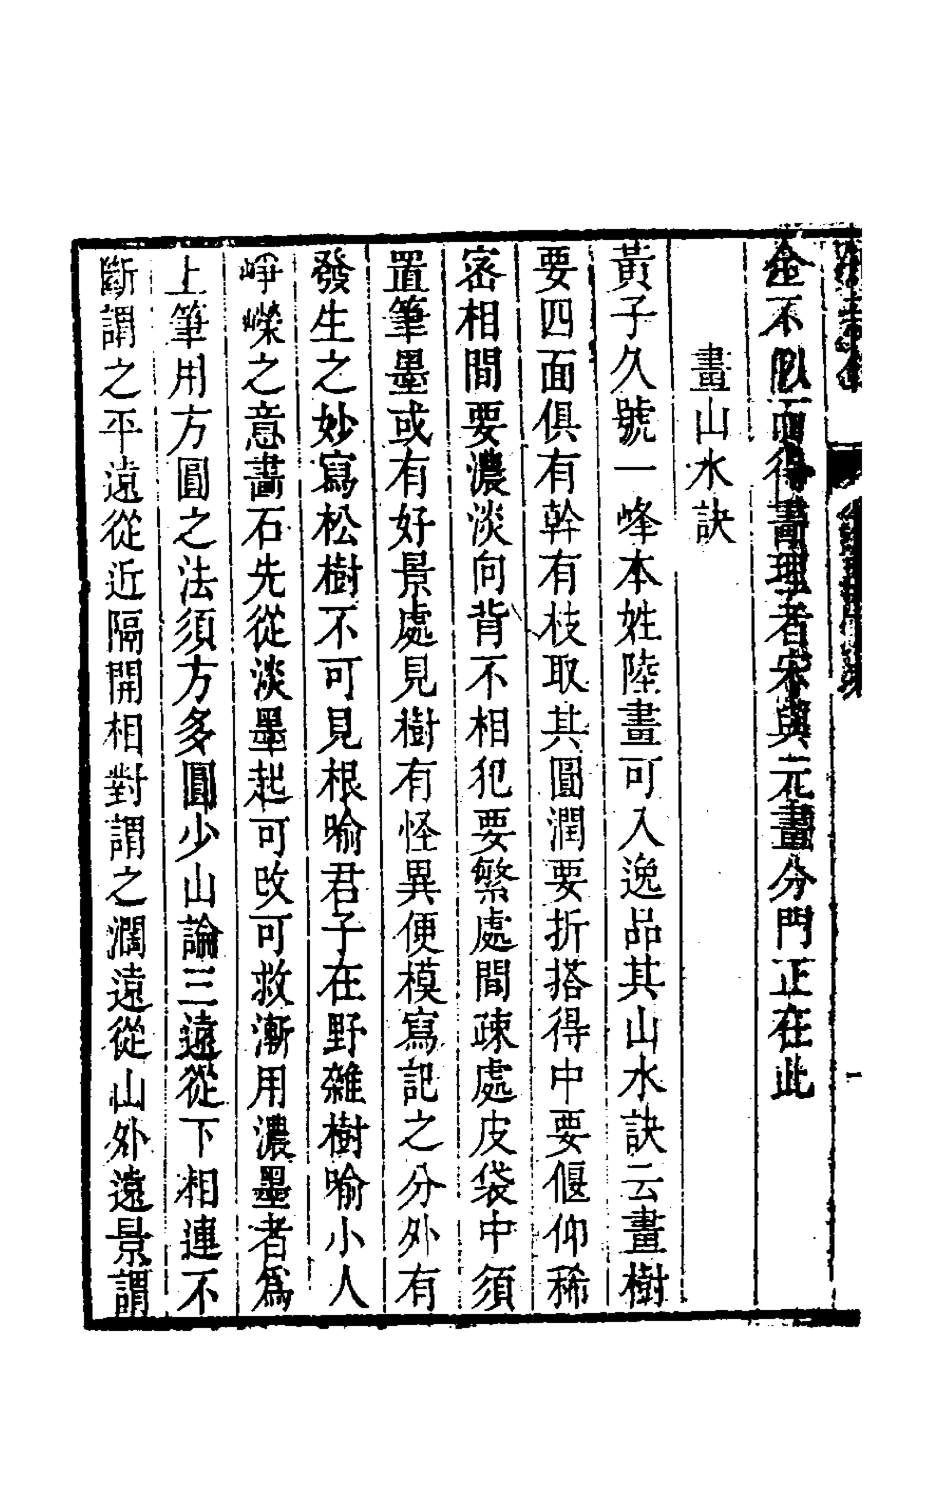 全不似而得畫理者宋與元畫分門正在此
畫山水訣
黃子久號一峰本姓陸畫可入逸品其山水訣云畫樹
要四面俱有幹有枝取其圓潤要折搭得中要偃仰稀
密相間要濃淡向背不相犯要繁處間疎處皮袋中須
置筆墨或有好景處見樹有怪異便模寫記之分外有
發生之妙寫松樹不可見根喻君子在野雜樹喻小人
崢嶸之意畵石先從淡墨起可改可救漸用濃墨者爲
上筆用方圓之法須方多圓少山論三遠從下相連不
斷謂之平遠從近隔開相對謂之濶遠從山外遠景謂